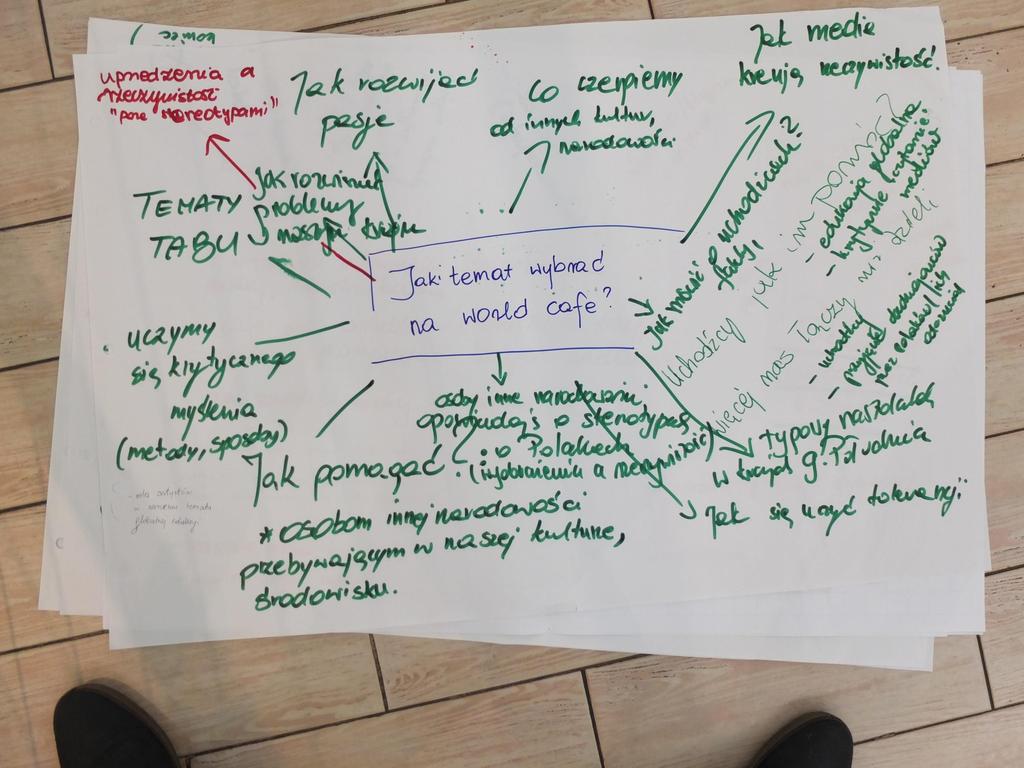 uprzedzenia a
rzeczywistość
"poza stereotypami"
Jak rozwijać
pasje
Co czerpiemy
od innych kultur,
narodowości
Jak media
kreują rzeczywistość.
TEMATY
TABU
Jak rozwinięte
problemy
Jaki temat wybrać
na world cafe?
Jak mówić o uchodźcach?
Uchodźcy jak im pomóc?
więcej nas łączy niż dzieli
- edukacja globalna
- krytyczne czytanie
mediów
- przyjazd
uczymy
się krytycznego
myślenia
(metody, sposoby)
osoby innej narodowości
opowiadają o stereotypach
o Polakach
(wyobrażenia a rzeczywistość)
typowy nastolatek
w krajach g. Południa
Jak się uczyć tolerancji
Jak pomagać
* osobom innej narodowości
przebywającym w naszej kulturze,
środowisku.